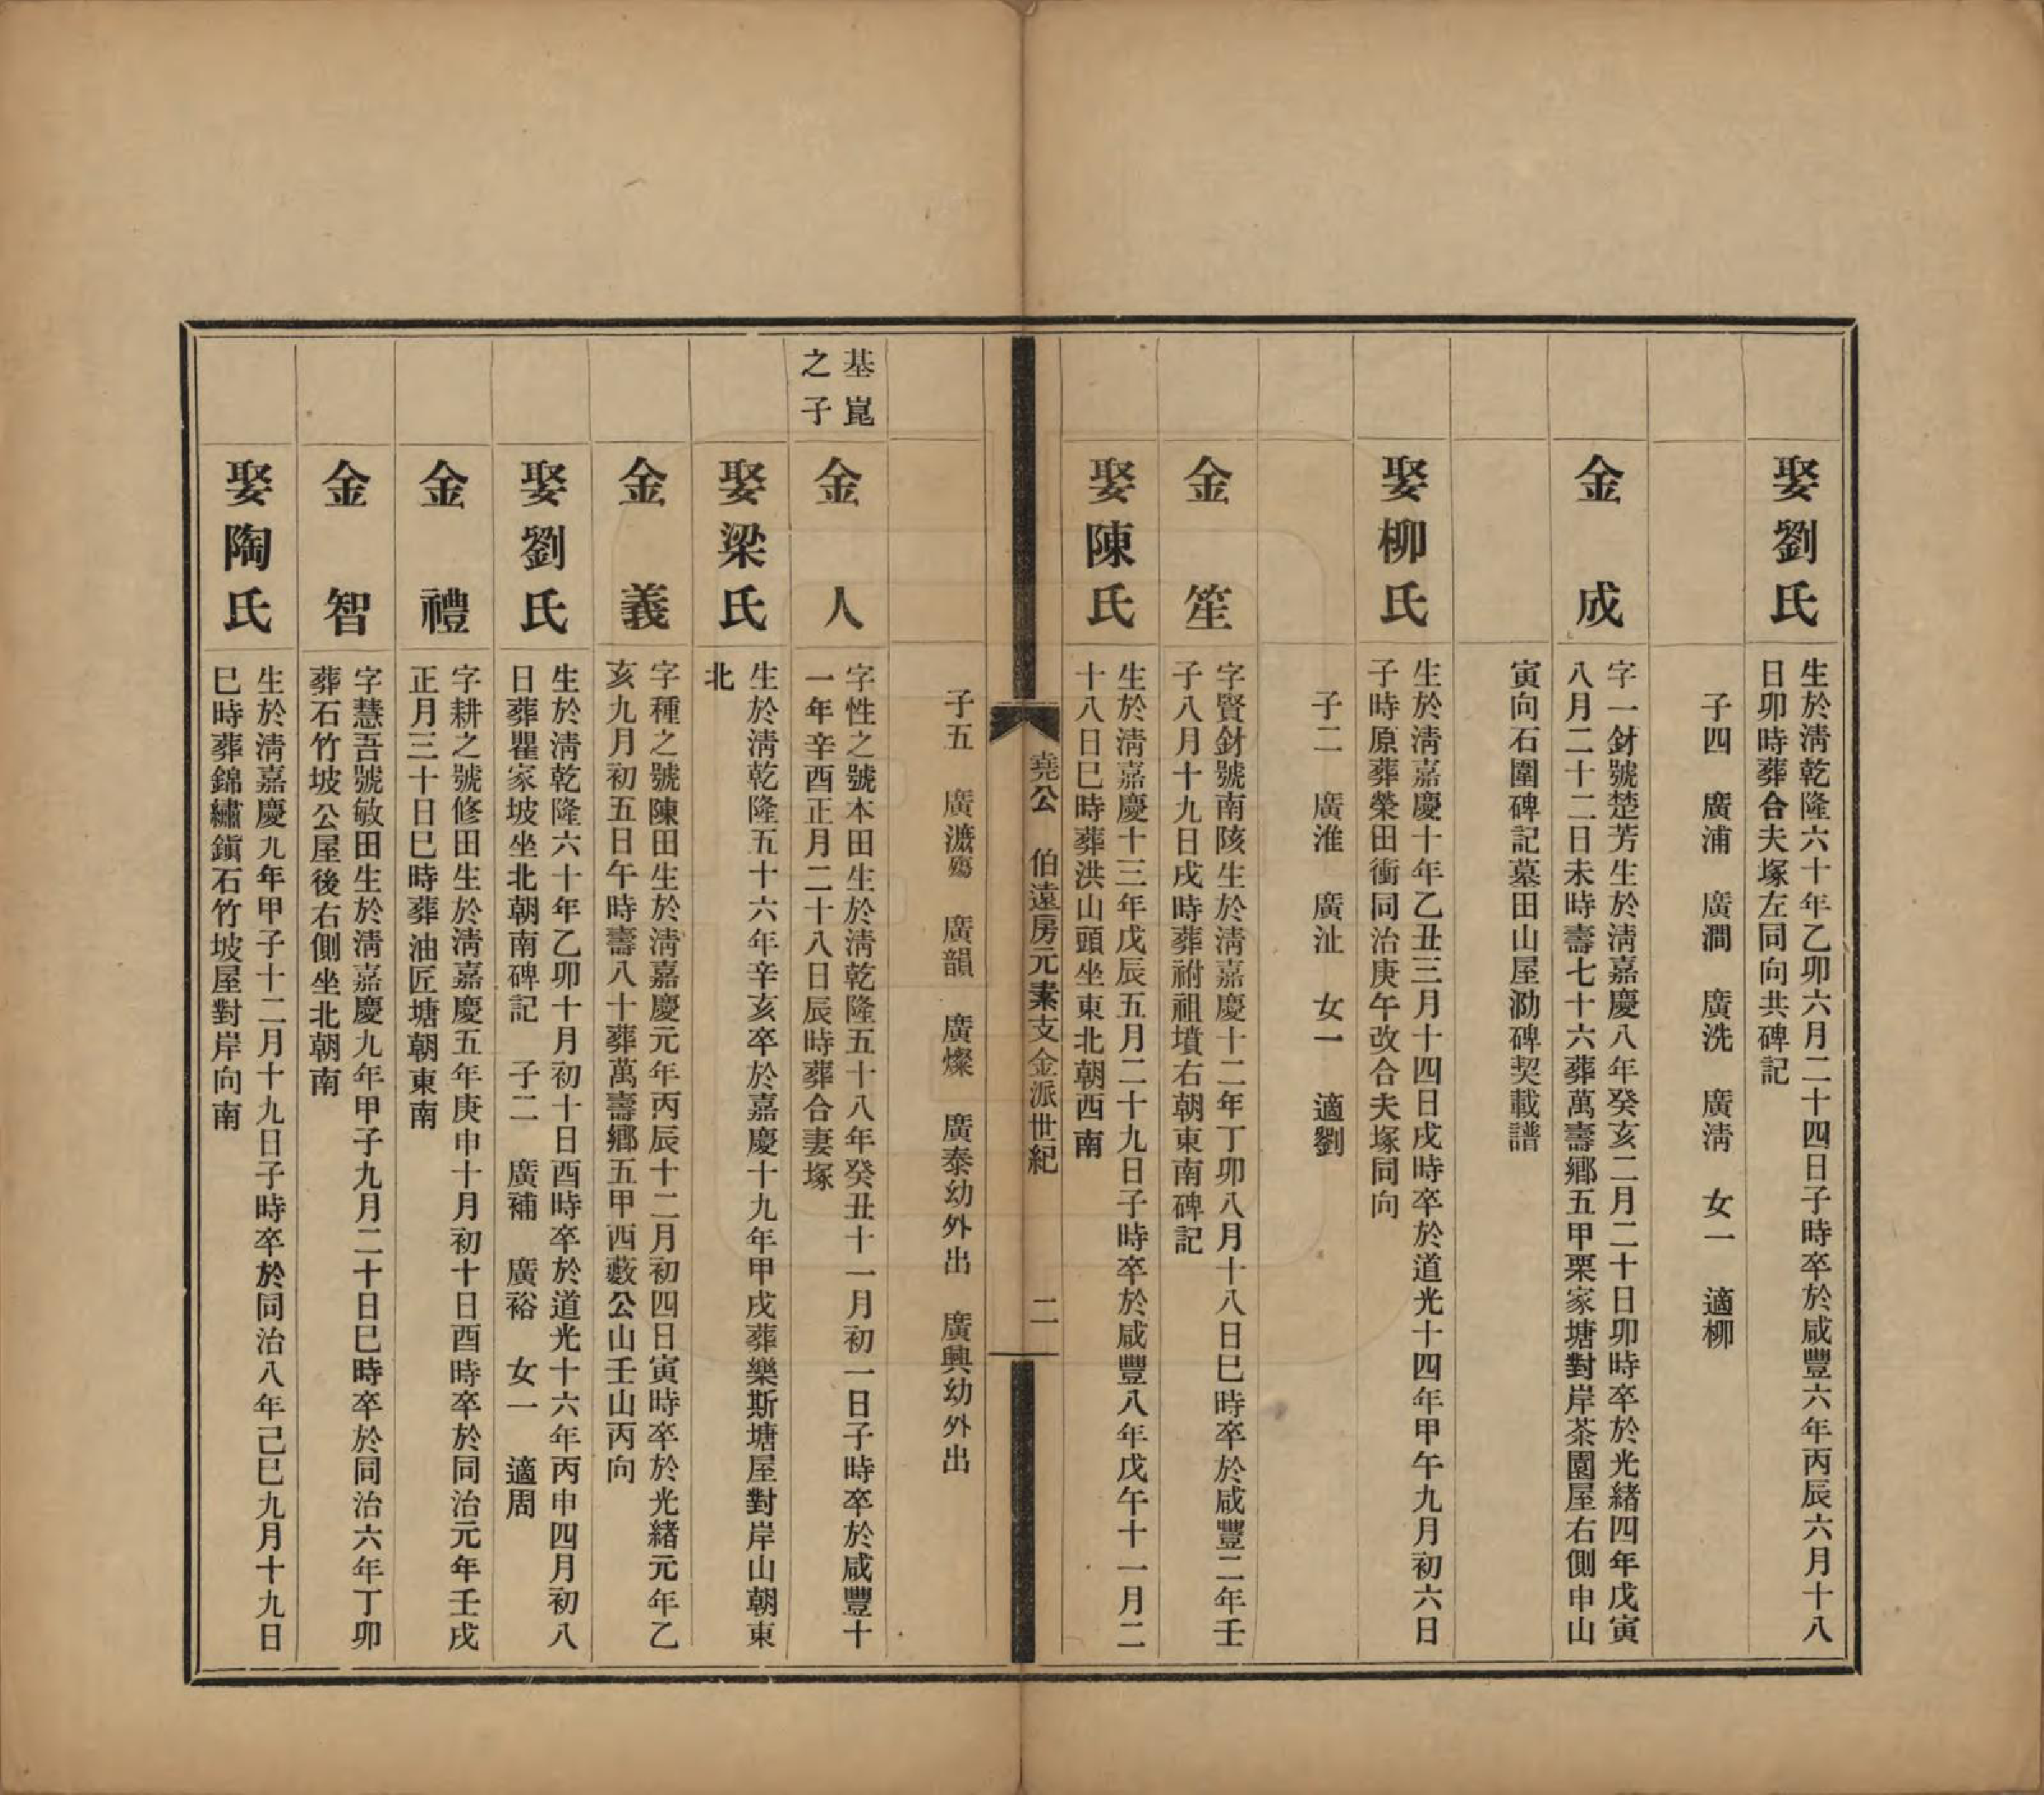 娶劉氏
生於淸乾隆六十年乙卯六月二十四日子時卒於咸豐六年丙辰六月十八
日卯時葬合夫塚左同向共碑記
子四　廣浦　廣澗　廣洗　廣淸　女一　適柳
金成
字一財號楚芳生於淸嘉慶八年癸亥二月二十日卯時卒於光緒四年戊寅
八月二十二日未時壽七十六葬萬壽鄕五甲栗家塘對岸茶園屋右側申山
寅向石圍碑記墓田山屋泐碑契載譜
娶柳氏
生於淸嘉慶十年乙丑三月十四日戌時卒於道光十四年甲午九月初六日
子時原葬榮田衝同治庚午改合夫塚同向
子二　廣淮　廣沚　女一　適劉
金笙
字賢財號南陔生於淸嘉慶十二年丁卯八月十八日巳時卒於咸豐二年壬
子八月十九日戌時葬祔祖墳右朝東南碑記
娶陳氏
生於淸嘉慶十三年戊辰五月二十九日子時卒於咸豐八年戊午十一月二
十八日巳時葬洪山頭坐東北朝西南
堯公　伯遠房元素支金派世紀　二
子五　廣瀌殤　廣韻　廣燦　廣泰幼外出　廣興幼外出
基崑
之子
金人
字性之號本田生於淸乾隆五十八年癸丑十一月初一日子時卒於咸豐十
一年辛酉正月二十八日辰時葬合妻塚
娶梁氏
生於淸乾隆五十六年辛亥卒於嘉慶十九年甲戌葬樂斯塘屋對岸山朝東
北
金義
字種之號陳田生於淸嘉慶元年丙辰十二月初四日寅時卒於光緒元年乙
亥九月初五日午時壽八十葬萬壽鄕五甲西藪公山壬山丙向
娶劉氏
生於淸乾隆六十年乙卯十月初十日酉時卒於道光十六年丙申四月初八
日葬瞿家坡坐北朝南碑記　子二　廣補　廣裕　女一　適周
金禮
字耕之號修田生於淸嘉慶五年庚申十月初十日酉時卒於同治元年壬戌
正月三十日巳時葬油匠塘朝東南
金智
字慧吾號敏田生於淸嘉慶九年甲子九月二十日巳時卒於同治六年丁卯
葬石竹坡公屋後右側坐北朝南
娶陶氏
生於淸嘉慶九年甲子十二月十九日子時卒於同治八年己巳九月十九日
巳時葬錦繡鎭石竹坡屋對岸向南